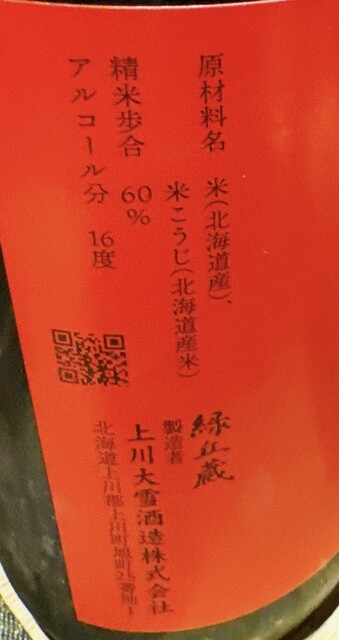 原材料名 米(北海道産)、
米こうじ(北海道産米)
精米歩合 60%
アルコール分 16度
緑丘蔵
製造者
上川大雪酒造株式会社
北海道上川郡上川町旭町25番地1